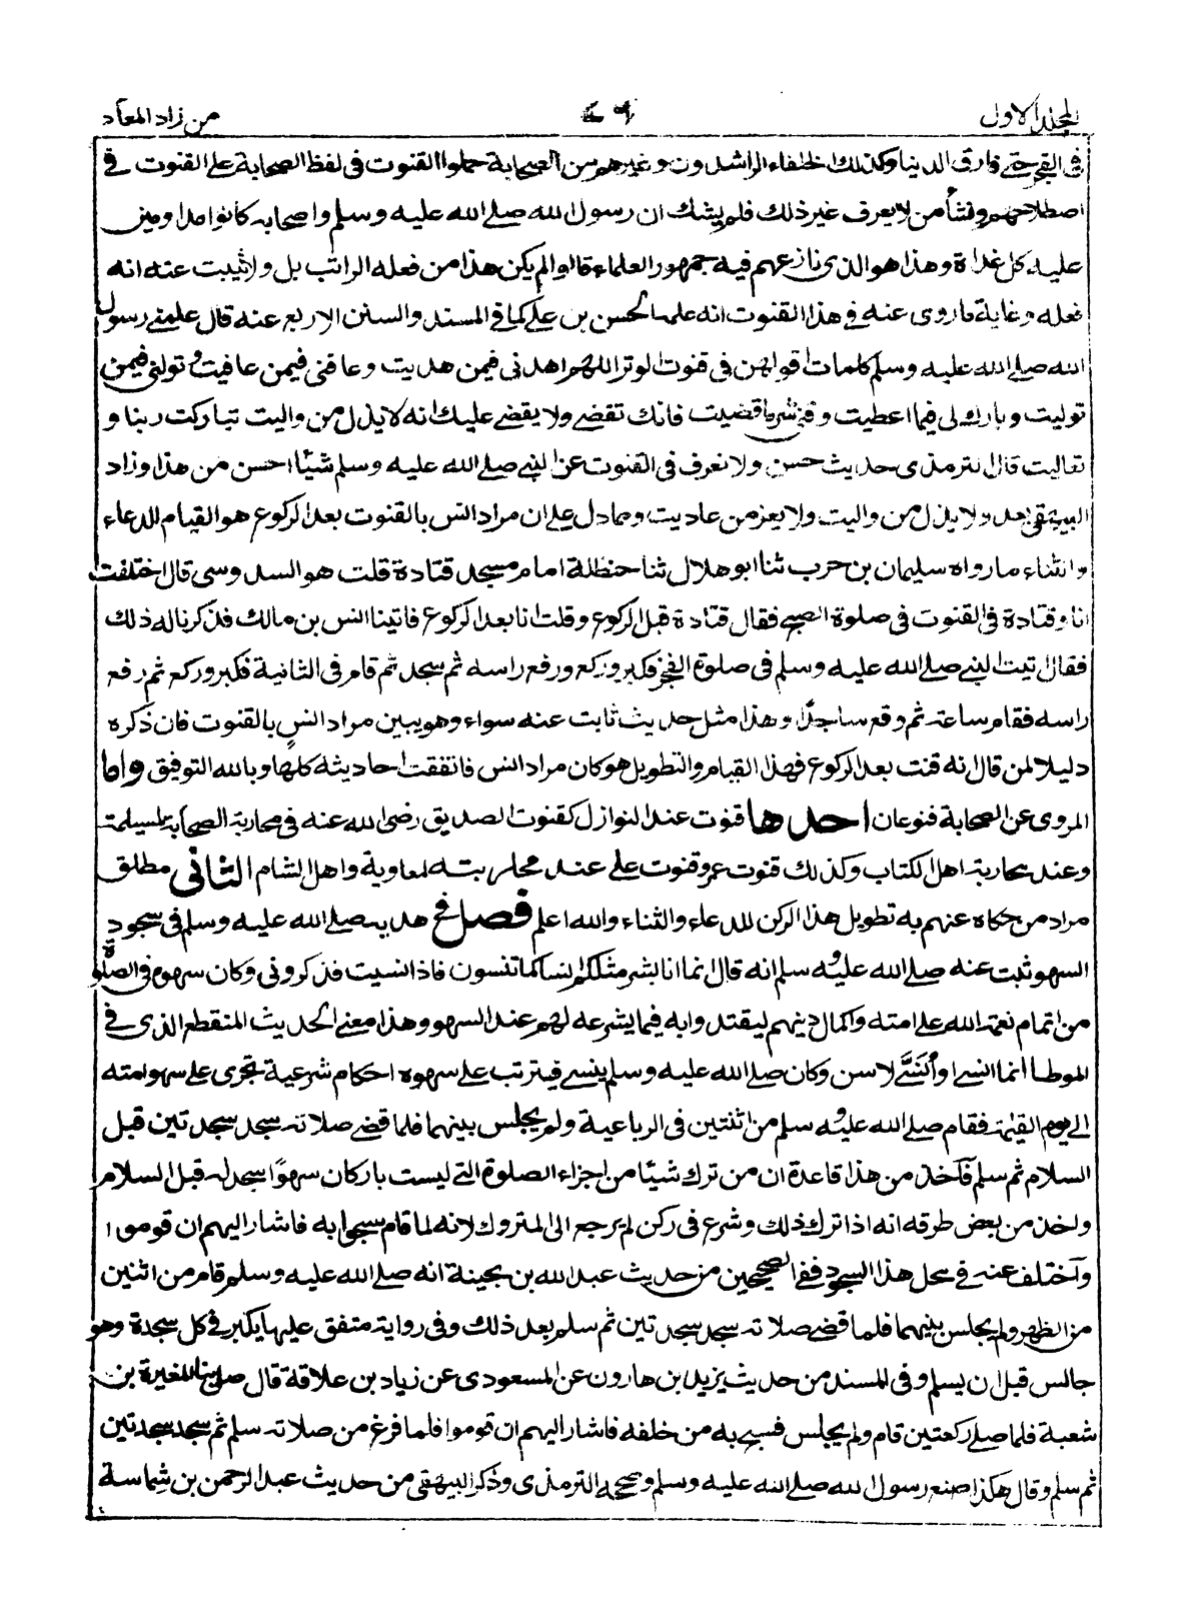 المجلد الاول
٧٦
من زاد المعاد
فى الفجر حتے فارق الدنيا وكذلك الخلفاء الراشدون وغيرهم من الصحابة حملوا القنوت فى لفظ الصحابة علے القنوت فے
اصطلاحهم ونشأ من لا يعرف غير ذلك فلم يشك ان رسول الله صلے الله عليه وسلم واصحابه كانوا مداومين
عليه كل غداة وهذا هو الذى نازعهم فيه جمهور العلماء قالوا لم يكن هذا من فعله الراتب بل ولا يثبت عنه انه
فعله وغاية ما روى عنه فے هذا القنوت انه علمه الحسن بن علے كما فى المسند والسنن الاربع عنه قال علمنے رسول
الله صلے الله عليه وسلم كلمات اقولهن فى قنوت الوتر اللهم اهدنى فيمن هديت وعافنى فيمن عافيت وتولنى فيمن
توليت وبارك لى فيما اعطيت وقنے شر ما قضيت فانك تقضے ولا يقضے عليك انه لا يذل من واليت تباركت ربنا و
تعاليت قال الترمذى حديث حسن ولا نعرف فى القنوت عن النبے صلے الله عليه وسلم شيئا احسن من هذا وزاد
البيهقى بعد ولا يذل من واليت ولا يعز من عاديت ومما دل علے ان مراد انس بالقنوت بعد الركوع هو القيام للدعاء
والثناء ما رواه سليمان بن حرب ثنا ابو هلال ثنا حنظلة امام مسجد قتادة قلت هو السدوسى قال اختلفت
انا وقتادة فى القنوت فى صلوة الصبح فقال قتادة قبل الركوع وقلت انا بعد الركوع فاتينا انس بن مالك فذكرنا له ذلك
فقال اتيت النبے صلے الله عليه وسلم فى صلوة الفجر فكبر وركع ورفع راسه ثم سجد ثم قام فى الثانية فكبر وركع ثم رفع
راسه فقام ساعة ثم وقع ساجدًا وهذا مثل حديث ثابت عنه سواء وهو يبين مراد انس بالقنوت فان ذكره
دليلا لمن قال انه قنت بعد الركوع فهذا القيام والتطويل هو كان مراد انس فاتفقت احاديثه كلها وبالله التوفيق واما
المروى عن الصحابة فنوعان احدهما قنوت عند النوازل كقنوت الصديق رضى الله عنه فى محاربة الصحابة لمسيلمة
وعند محاربة اهل الكتاب وكذلك قنوت عمر وقنوت علے عند محاربته لمعاوية واهل الشام الثانى مطلق
مراد من حكاه عنهم به تطويل هذا الركن للدعاء والثناء والله اعلم فصل فے هديه صلے الله عليه وسلم فى سجود
السهو ثبت عنه صلے الله عليه وسلم انه قال انما انا بشر مثلكم انسى كما تنسون فاذا نسيت فذكرونى وكان سهوه فى الصلوة
من اتمام نعمة الله علے امته واكمال دينهم ليقتدوا به فيما يشرعه لهم عند السهو وهذا معنے الحديث المنقطع الذى فے
الموطا انما انسى او اُنَسَّے لاسن وكان صلے الله عليه وسلم ينسے فيترتب علے سهوه احكام شرعية تجرى علے سهو امته
الے يوم القيامة فقام صلے الله عليه وسلم من اثنتين فى الرباعية ولم يجلس بينهما فلما قضے صلاته سجد سجدتين قبل
السلام ثم سلم فآخذ من هذا قاعدة ان من ترك شيئا من اجزاء الصلوة التے ليست باركان سهوًا سجد له قبل السلام
واخذ من بعض طرقه انه اذا ترك ذلك وشرع فى ركن لم يرجع الى المتروك لانه لما قام سبحوا به فاشار اليهم ان قوموا
وآختلف عنه فے محل هذا السجود ففے الصحيحين من حديث عبد الله بن بحينة انه صلے الله عليه وسلم قام من اثنين
من الظهر ولم يجلس بينهما فلما قضے صلاته سجد سجدتين ثم سلم بعد ذلك وفى رواية متفق عليها يكبر فے كل سجدة وهو
جالس قبل ان يسلم وفى المسند من حديث يزيد بن هارون عن المسعودى عن زياد بن علاقة قال صلى بنا المغيرة بن
شعبة فلما صلے ركعتين قام ولم يجلس فسبح به من خلفه فاشار اليهم ان قوموا فلما فرغ من صلاته سلم ثم سجد سجدتين
ثم سلم وقال هكذا صنع رسول الله صلے الله عليه وسلم وصححه الترمذى وذكر البيهقى من حديث عبد الرحمن بن شماسة